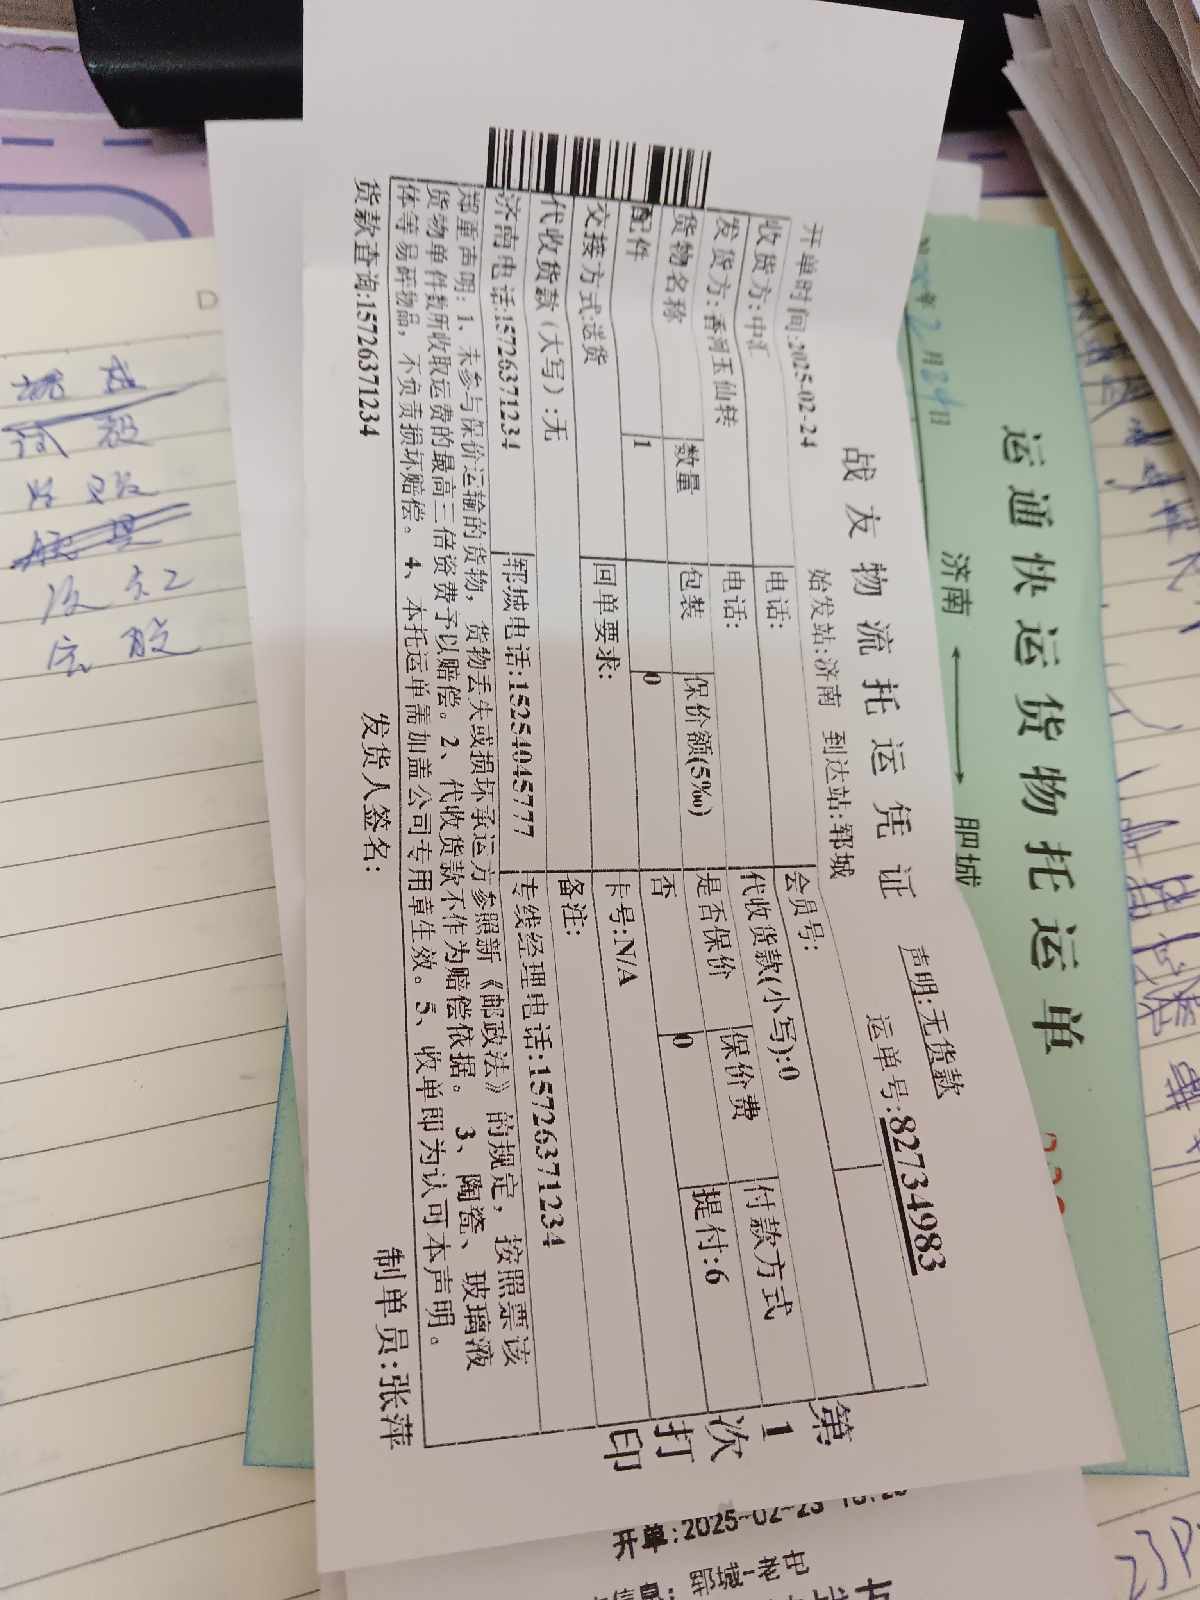 战友物流托运凭证
声明:无货款
运单号:82734983
开单时间:2025-02-24
始发站:济南 到达站:郓城
收货方:中汇
电话:
会员号:
发货方:香河玉仙转
电话:
代收货款(小写):0
货物名称 数量 包装 保价额(5‰) 是否保价 保价费 付款方式
配件 1 0 否 0 提付:6
交接方式:送货 回单要求: 卡号:N/A
代收货款(大写):无 备注:
济南电话:15726371234 郓城电话:15254045777 专线经理电话:15726371234
郑重声明:1、未参与保价运输的货物,货物丢失或损坏承运方参照新《邮政法》的规定,按照票该
货物单件数所收取运费的最高三倍资费予以赔偿。2、代收货款不作为赔偿依据。3、陶瓷、玻璃液
体等易碎物品,不负责损坏赔偿。4、本托运单需加盖公司专用章生效。5、收单即为认可本声明。
货款查询:15726371234 发货人签名: 制单员:张萍
第1次打印
运通快运货物托运单
济南 肥城
年2月24日
开单:2025-02-23
郓城